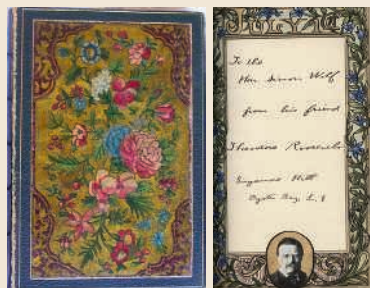 July 4
To the
Hon. Simon Wolf
from his friend
Theodore Roosevelt
Sagamore Hill
Oyster Bay, L. I.